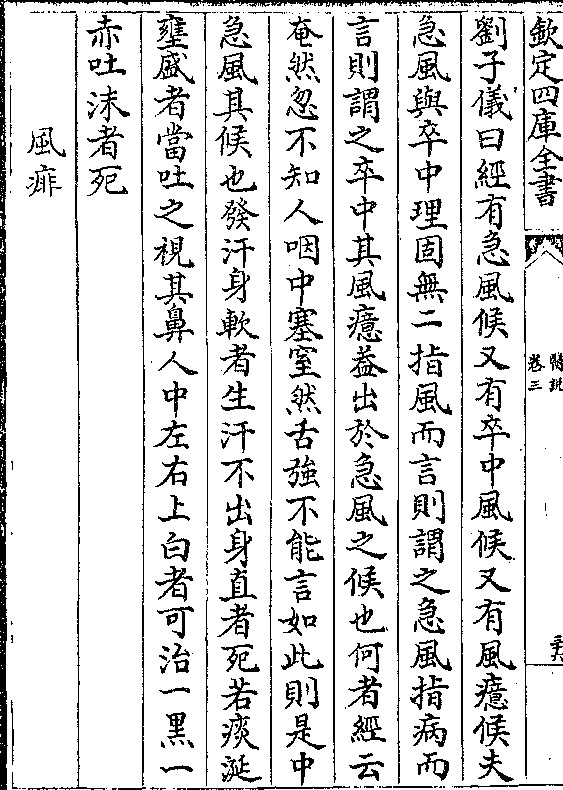 欽定四庫全書
醫說
卷三
劉子儀曰經有急風候又有卒中風候又有風癔候夫
急風與卒中理固無二指風而言則謂之急風指病而
言則謂之卒中其風癔葢出於急風之候也何者經云
奄然忽不知人咽中塞窒然舌強不能言如此則是中
急風其候也發汗身軟者生汗不出身直者死若痰涎
壅盛者當吐之視其鼻人中左右上白者可治一黒一
赤吐沫者死
風痱